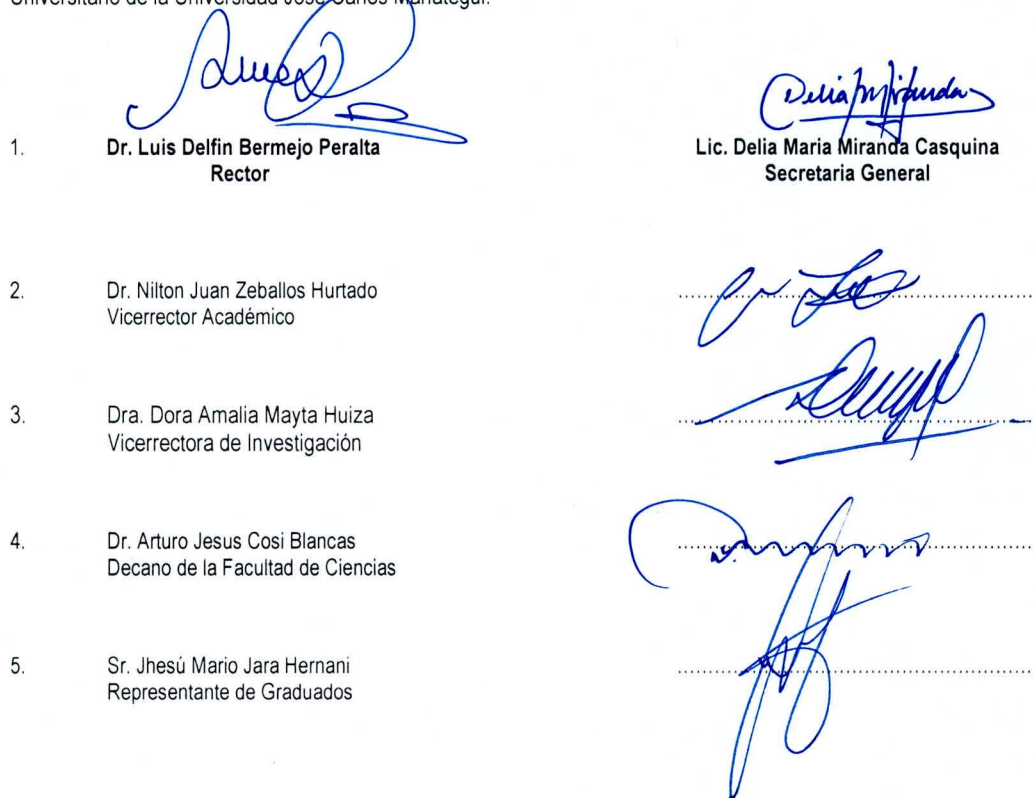 Universitario de la Universidad José Carlos Mariátegui.
1. Dr. Luis Delfin Bermejo Peralta
Rector
Lic. Delia Maria Miranda Casquina
Secretaria General
2. Dr. Nilton Juan Zeballos Hurtado
Vicerrector Académico
3. Dra. Dora Amalia Mayta Huiza
Vicerrectora de Investigación
4. Dr. Arturo Jesus Cosi Blancas
Decano de la Facultad de Ciencias
5. Sr. Jhesú Mario Jara Hernani
Representante de Graduados